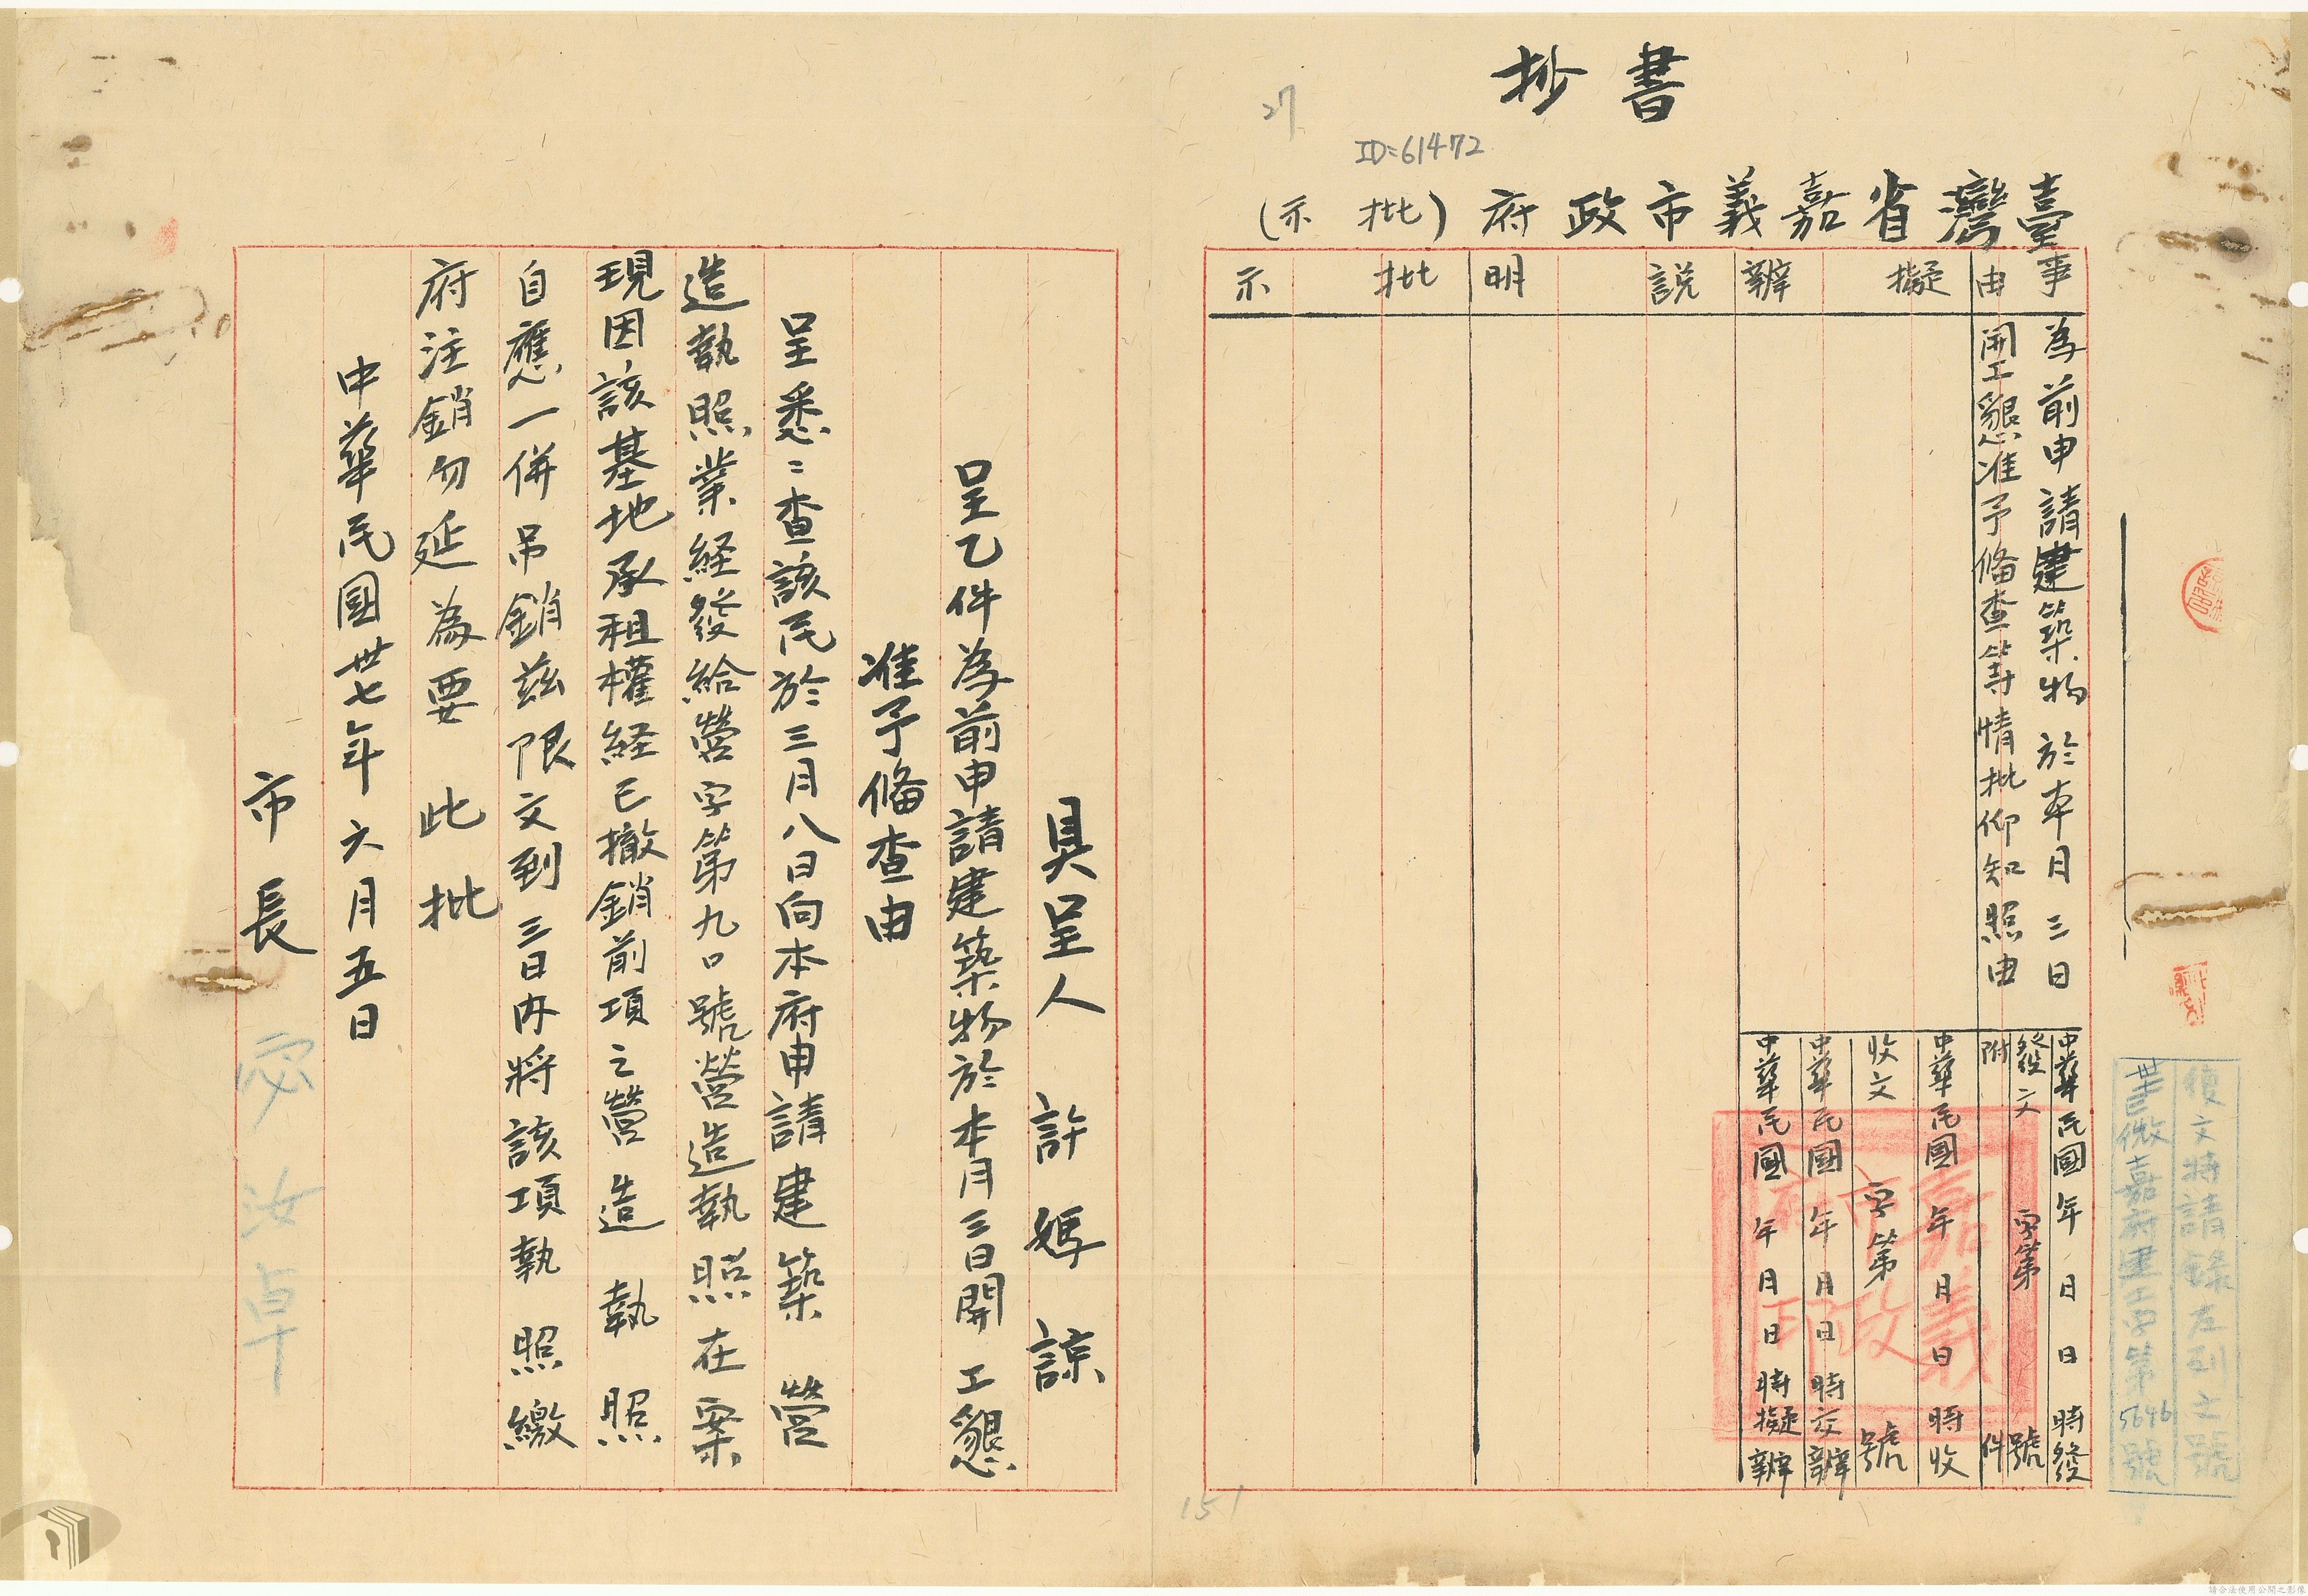 書抄
27
ID=61472
臺灣省嘉義市政府(批示)
事由
擬辦
說明
批示
為前申請建築物於本月三日
開工懇准予條查等情批仰知照由
中華民國年月日時發
發文字第號
附件
中華民國年月日時收
收文字第號
中華民國年月日時交辦
中華民國年月日時擬辦
嘉義市政府
復文時請錄左列之號
嘉府建工字第5646號
具呈人許媽諒
呈乙件為前申請建築物於本月三日開工懇
准予條查由
呈悉:查該民於三月八日向本府申請建築營
造執照業経發給營字第九口號營造執照在案
現因該基地承租權経已撤銷前項之營造執照
自應一併吊銷茲限文到三日内將該項執照繳
府注銷勿延為要此批
中華民國卅七年六月五日
市長
宓汝卓
151
請合法使用公開之影像